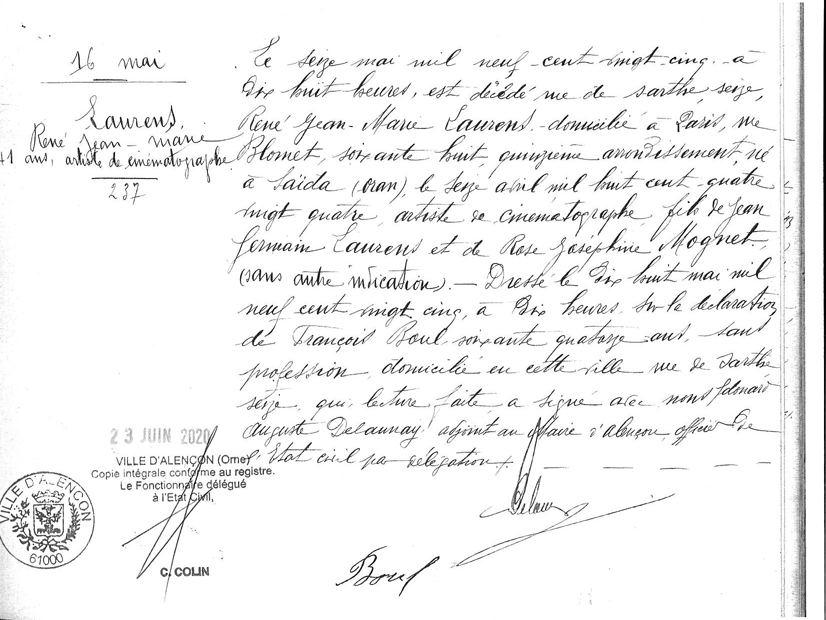 16 mai
Laurens,
René Jean-Marie
41 ans, artiste de cinématographe
237
Le seize mai mil neuf-cent vingt-cinq, à
dix huit heures, est décédé rue de Sarthe, seize,
René Jean-Marie Laurens, domicilié à Paris, rue
Blomet, soixante huit, quinzième arrondissement, né
à Saïda (Oran), le seize avril mil huit cent-quatre
vingt quatre, artiste de cinématographe, fils de Jean
Germain Laurens et de Rose Joséphine Mognet,
(sans autre indication).— Dressé le dix huit mai mil
neuf cent vingt cinq, à dix heures, sur la déclaration
de François Boul soixante quatorze ans, sans
profession, domicilié en cette ville rue de Sarthe
seize, qui, lecture faite, a signé avec nous Edouard
Auguste Delaunay, adjoint au Maire d'Alençon, officier de
l'Etat civil par délégation.
23 JUIN 2020
VILLE D'ALENÇON (Orne)
Copie intégrale conforme au registre.
Le Fonctionnaire délégué
à l'Etat Civil,
C. COLIN
VILLE D'ALENÇON
61000
Boul